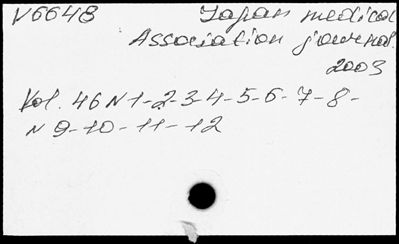 V6648 Japan medical
Association journal.
2003
Vol. 46 N 1-2-3-4-5-6-7-8-
N 9-10-11-12